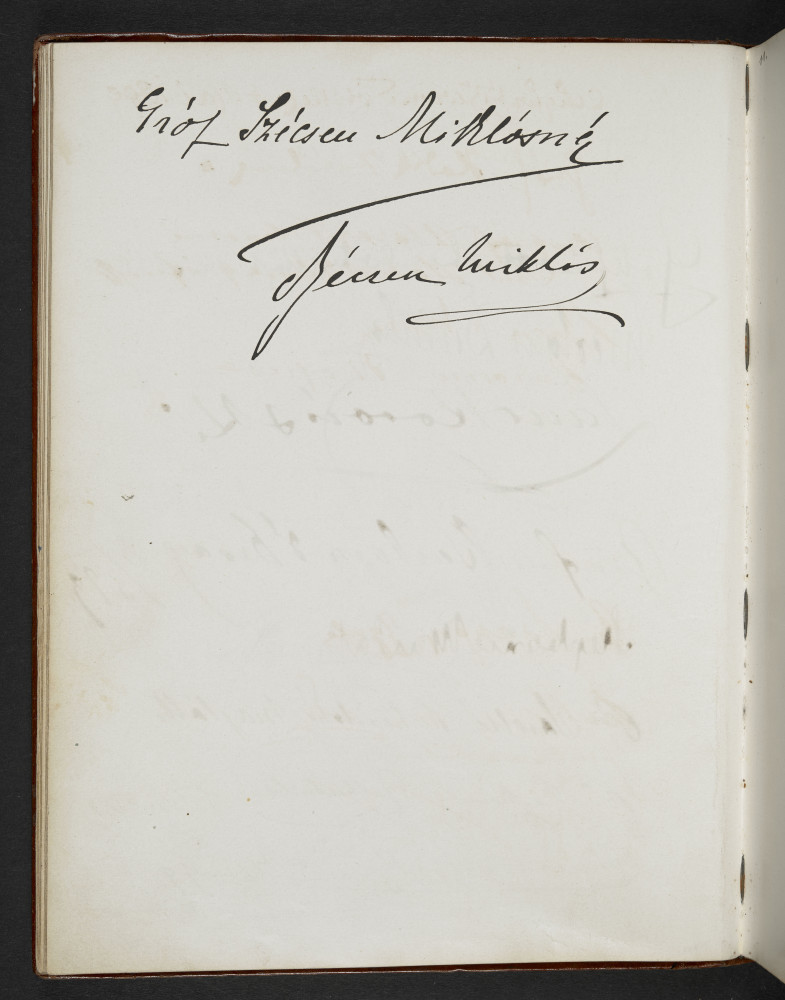 Gróf Szécsen Miklósné
Szécsen Miklós